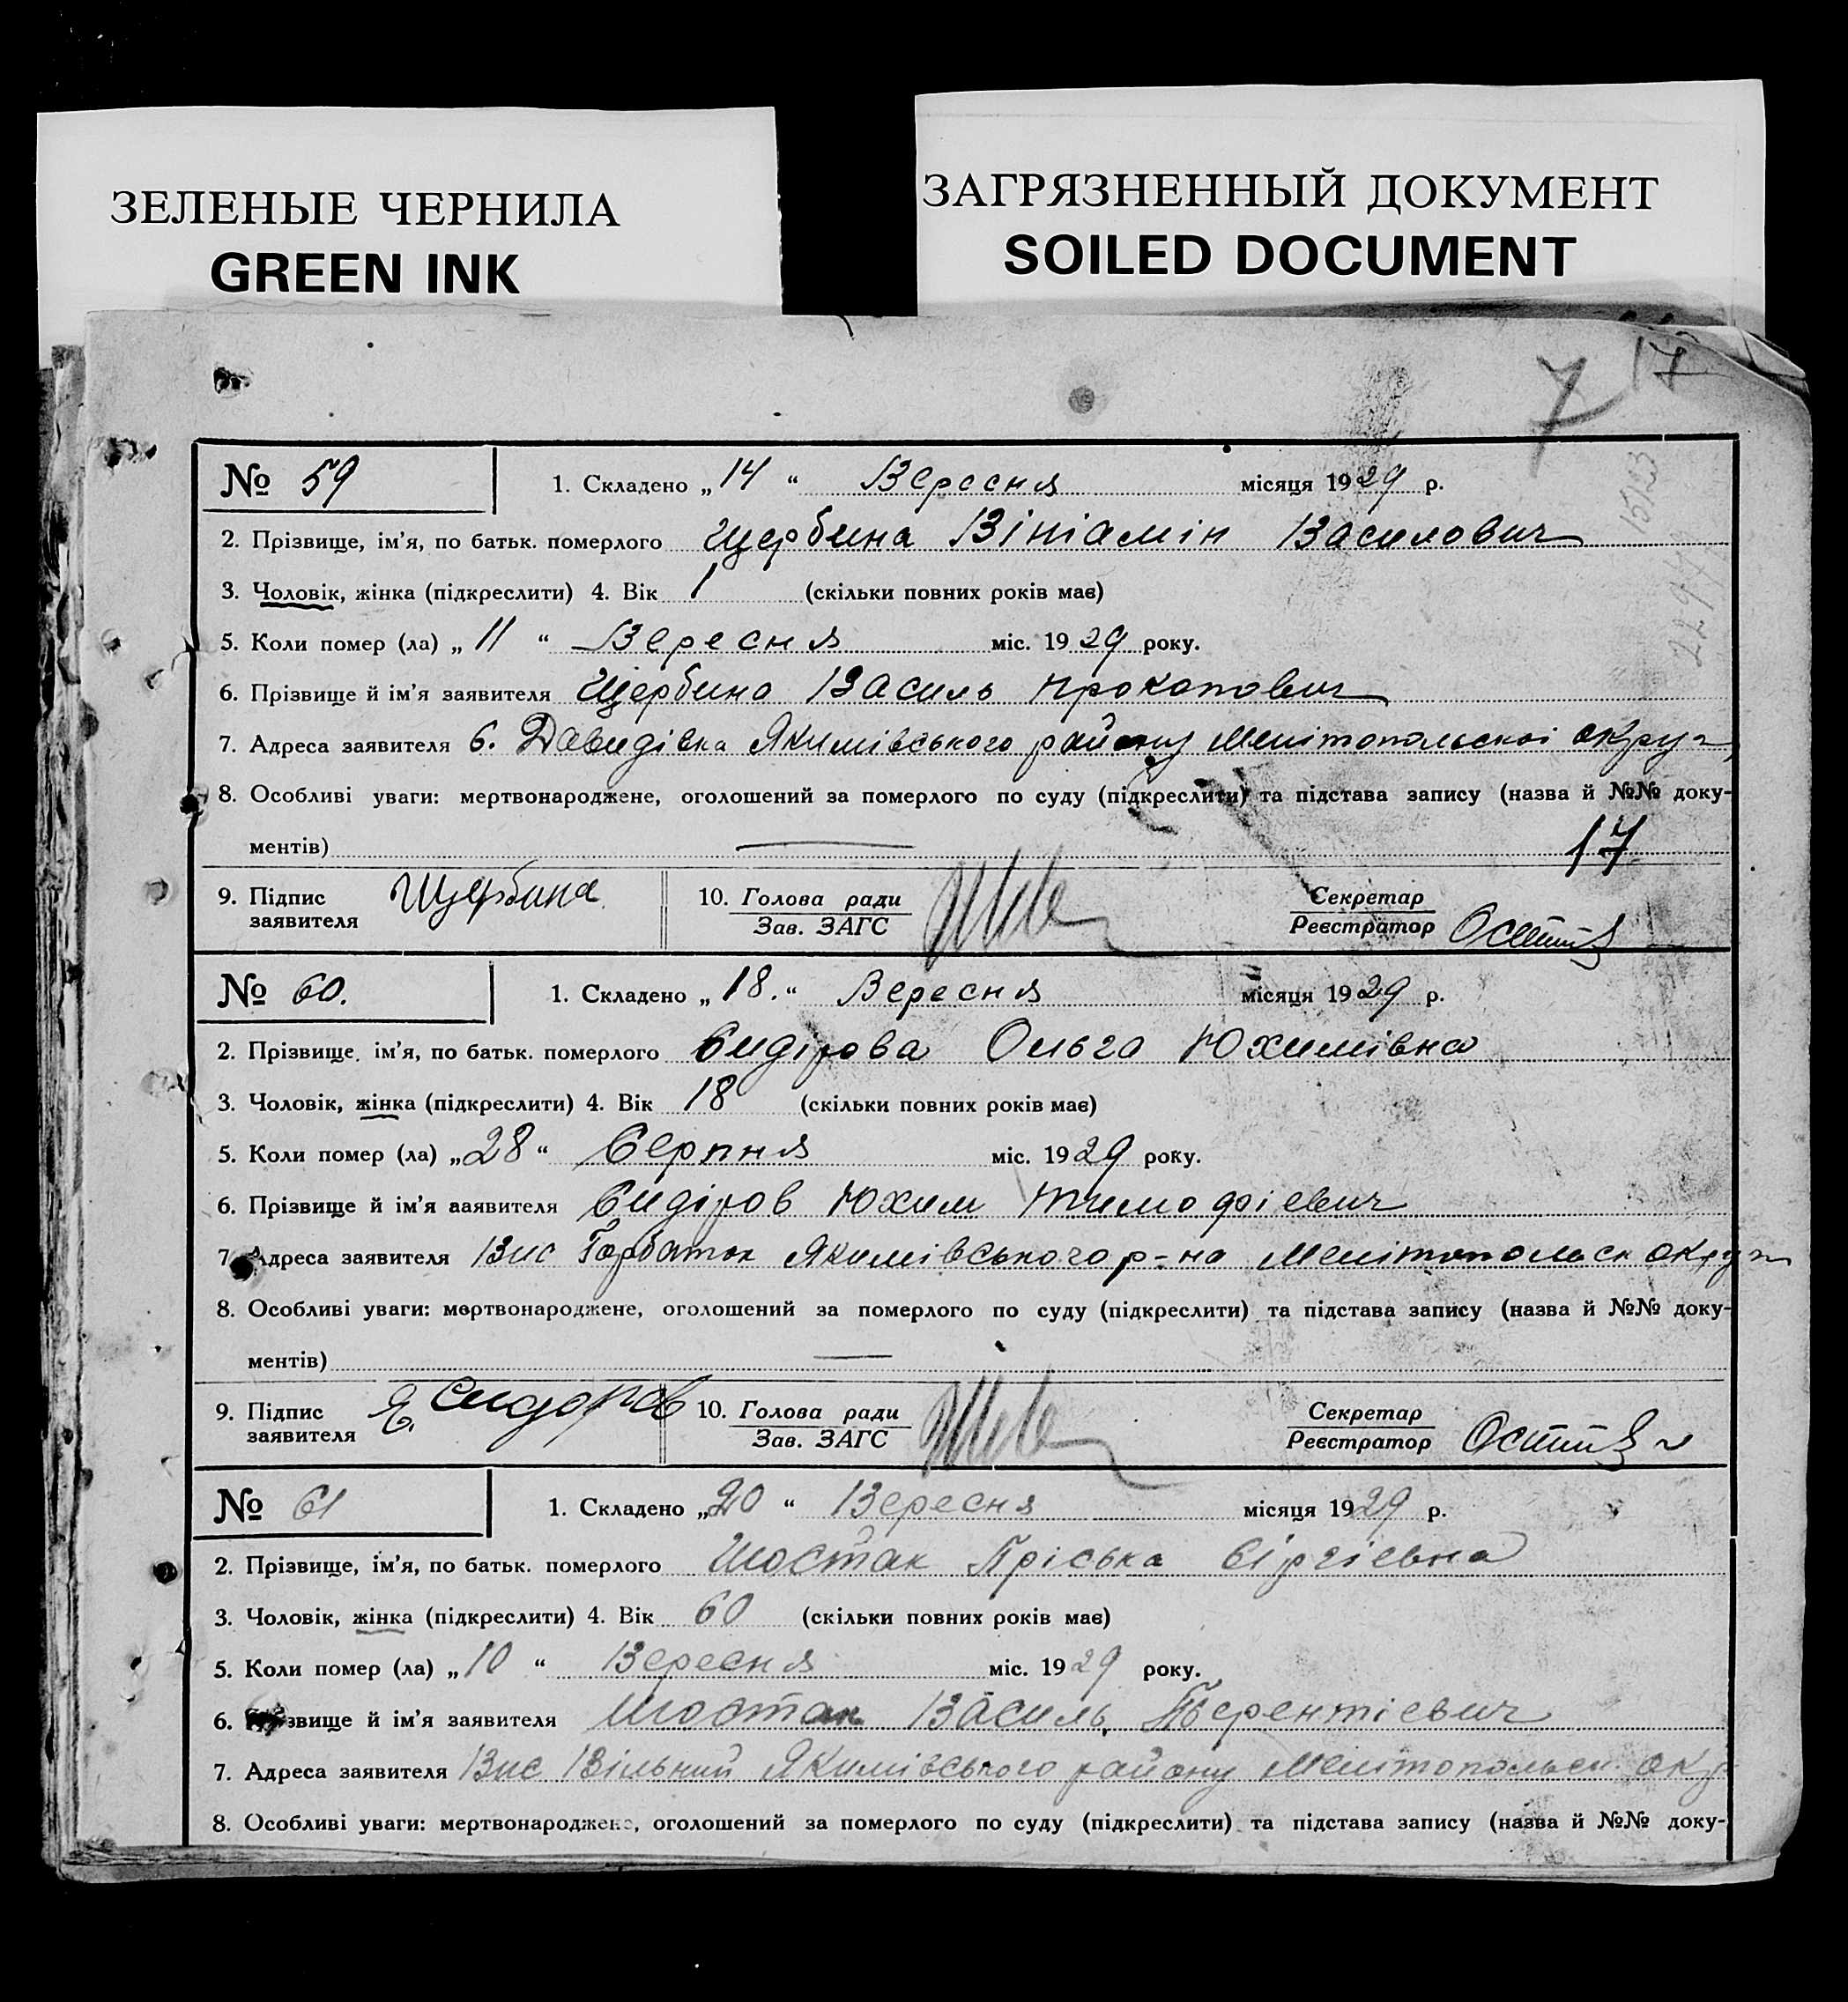 ЗЕЛЕНЫЕ ЧЕРНИЛА
GREEN INK
ЗАГРЯЗНЕННЫЙ ДОКУМЕНТ
SOILED DOCUMENT
7 17
№ 59 1. Складено „ 14 “ Вересня місяця 1929 р.
2. Прізвище, ім'я, по батьк. померлого Щербина Вініамін Василович
3. Чоловік, жінка (підкреслити) 4. Вік 1 (скільки повних років має)
5. Коли помер (ла) „ 11 “ Вересня міс. 1929 року.
6. Прізвище й ім'я заявителя Щербина Василь Прокопович
7. Адреса заявителя С. Давидівка Якимівського району Мелітопольскої округ
8. Особливі уваги: мертвонароджене, оголошений за померлого по суду (підкреслити) та підстава запису (назва й №№ доку-
ментів) 17
9. Підпис заявителя Щербина 10. Голова ради Зав. ЗАГС Секретар Реєстратор
№ 60. 1. Складено „ 18. “ Вересня місяця 1929 р.
2. Прізвище, ім'я, по батьк. померлого Сидірова Ольга Юхимівна
3. Чоловік, жінка (підкреслити) 4. Вік 18 (скільки повних років має)
5. Коли помер (ла) „ 28 “ Серпня міс. 1929 року.
6. Прізвище й ім'я заявителя Сидіров Юхим Тимофієвич
7. Адреса заявителя Вис Горбаток Якимівського р-на Мелітопольск округ
8. Особливі уваги: мертвонароджене, оголошений за померлого по суду (підкреслити) та підстава запису (назва й №№ доку-
ментів)
9. Підпис заявителя Е. Сидоров 10. Голова ради Зав. ЗАГС Секретар Реєстратор
№ 61 1. Складено „ 20 “ Вересня місяця 1929 р.
2. Прізвище, ім'я, по батьк. померлого Шостак Пріська Сіргієвна
3. Чоловік, жінка (підкреслити) 4. Вік 60 (скільки повних років має)
5. Коли помер (ла) „ 10 “ Вересня міс. 1929 року.
6. Прізвище й ім'я заявителя Шостак Василь Терентієвич
7. Адреса заявителя Вис. Вільний Якимівського району Мелітопольск. окр
8. Особливі уваги: мертвонароджене, оголошений за померлого по суду (підкреслити) та підстава запису (назва й №№ доку-